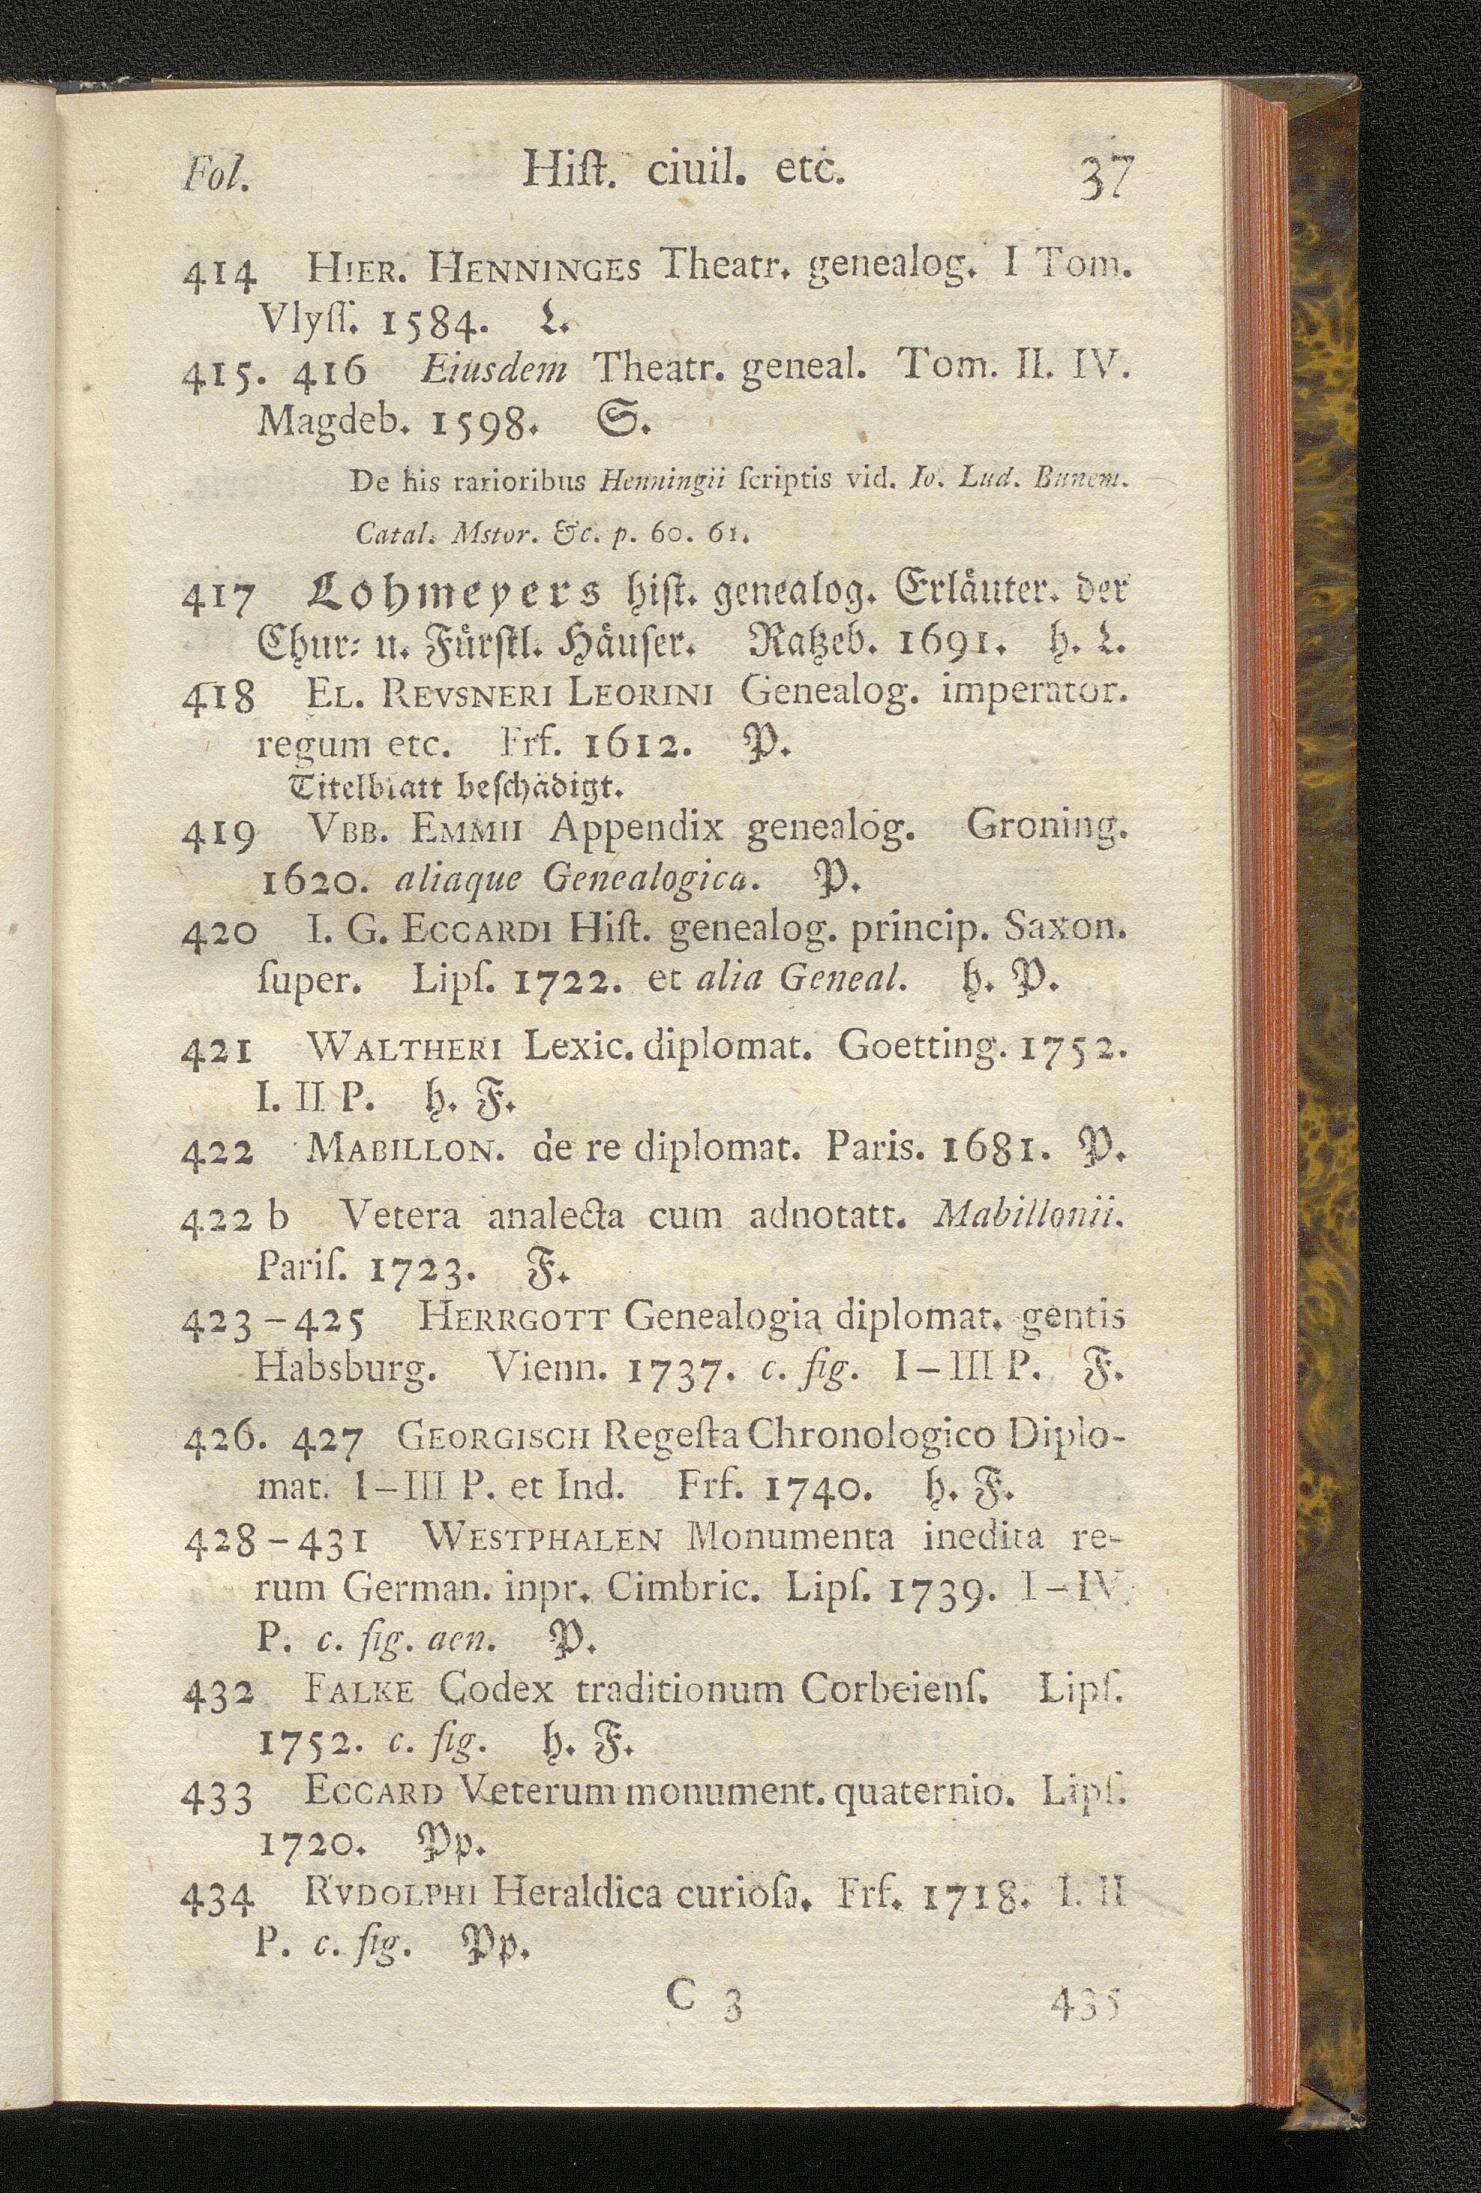 Fol. Hiſt. ciuil. etc. 37
414 HIER. HENNINGES Theatr. genealog. I Tom.
Vlyſſ. 1584. L.
415. 416 Eiusdem Theatr. geneal. Tom. II. IV.
Magdeb. 1598. S.
De his rarioribus Henningii ſcriptis vid. Io. Lud. Bunem.
Catal. Mstor. &c. p. 60. 61.
417 Lohmeyers hiſt. genealog. Erläuter. der
Chur- u. Fürſtl. Häuſer. Ratzeb. 1691. h. L.
418 EL. REVSNERI LEORINI Genealog. imperator.
regum etc. Frf. 1612. P.
Titelblatt beſchädigt.
419 VBB. EMMII Appendix genealog. Groning.
1620. aliaque Genealogica. P.
420 I. G. ECCARDI Hiſt. genealog. princip. Saxon.
ſuper. Lipſ. 1722. et alia Geneal. h. P.
421 WALTHERI Lexic. diplomat. Goetting. 1752.
I. II P. h. F.
422 MABILLON. de re diplomat. Paris. 1681. P.
422 b Vetera analecta cum adnotatt. Mabillonii.
Pariſ. 1723. F.
423–425 HERRGOTT Genealogia diplomat. gentis
Habsburg. Vienn. 1737. c. fig. I–III P. F.
426. 427 GEORGISCH Regeſta Chronologico Diplo-
mat. I–III P. et Ind. Frf. 1740. h. F.
428–431 WESTPHALEN Monumenta inedita re-
rum German. inpr. Cimbric. Lipſ. 1739. I–IV
P. c. fig. aen. P.
432 FALKE Codex traditionum Corbeienſ. Lipſ.
1752. c. fig. h. F.
433 ECCARD Veterum monument. quaternio. Lipſ.
1720. Pp.
434 RVDOLPHI Heraldica curioſa. Frf. 1718. I. II
P. c. fig. Pp.
C 3 435